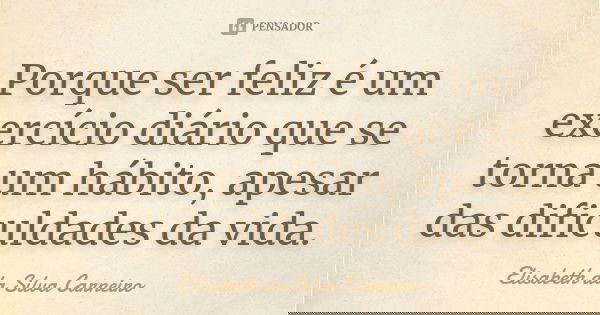 PENSADOR
Porque ser feliz é um
exercício diário que se
torna um hábito, apesar
das dificuldades da vida.
Elisabeth da Silva Carneiro